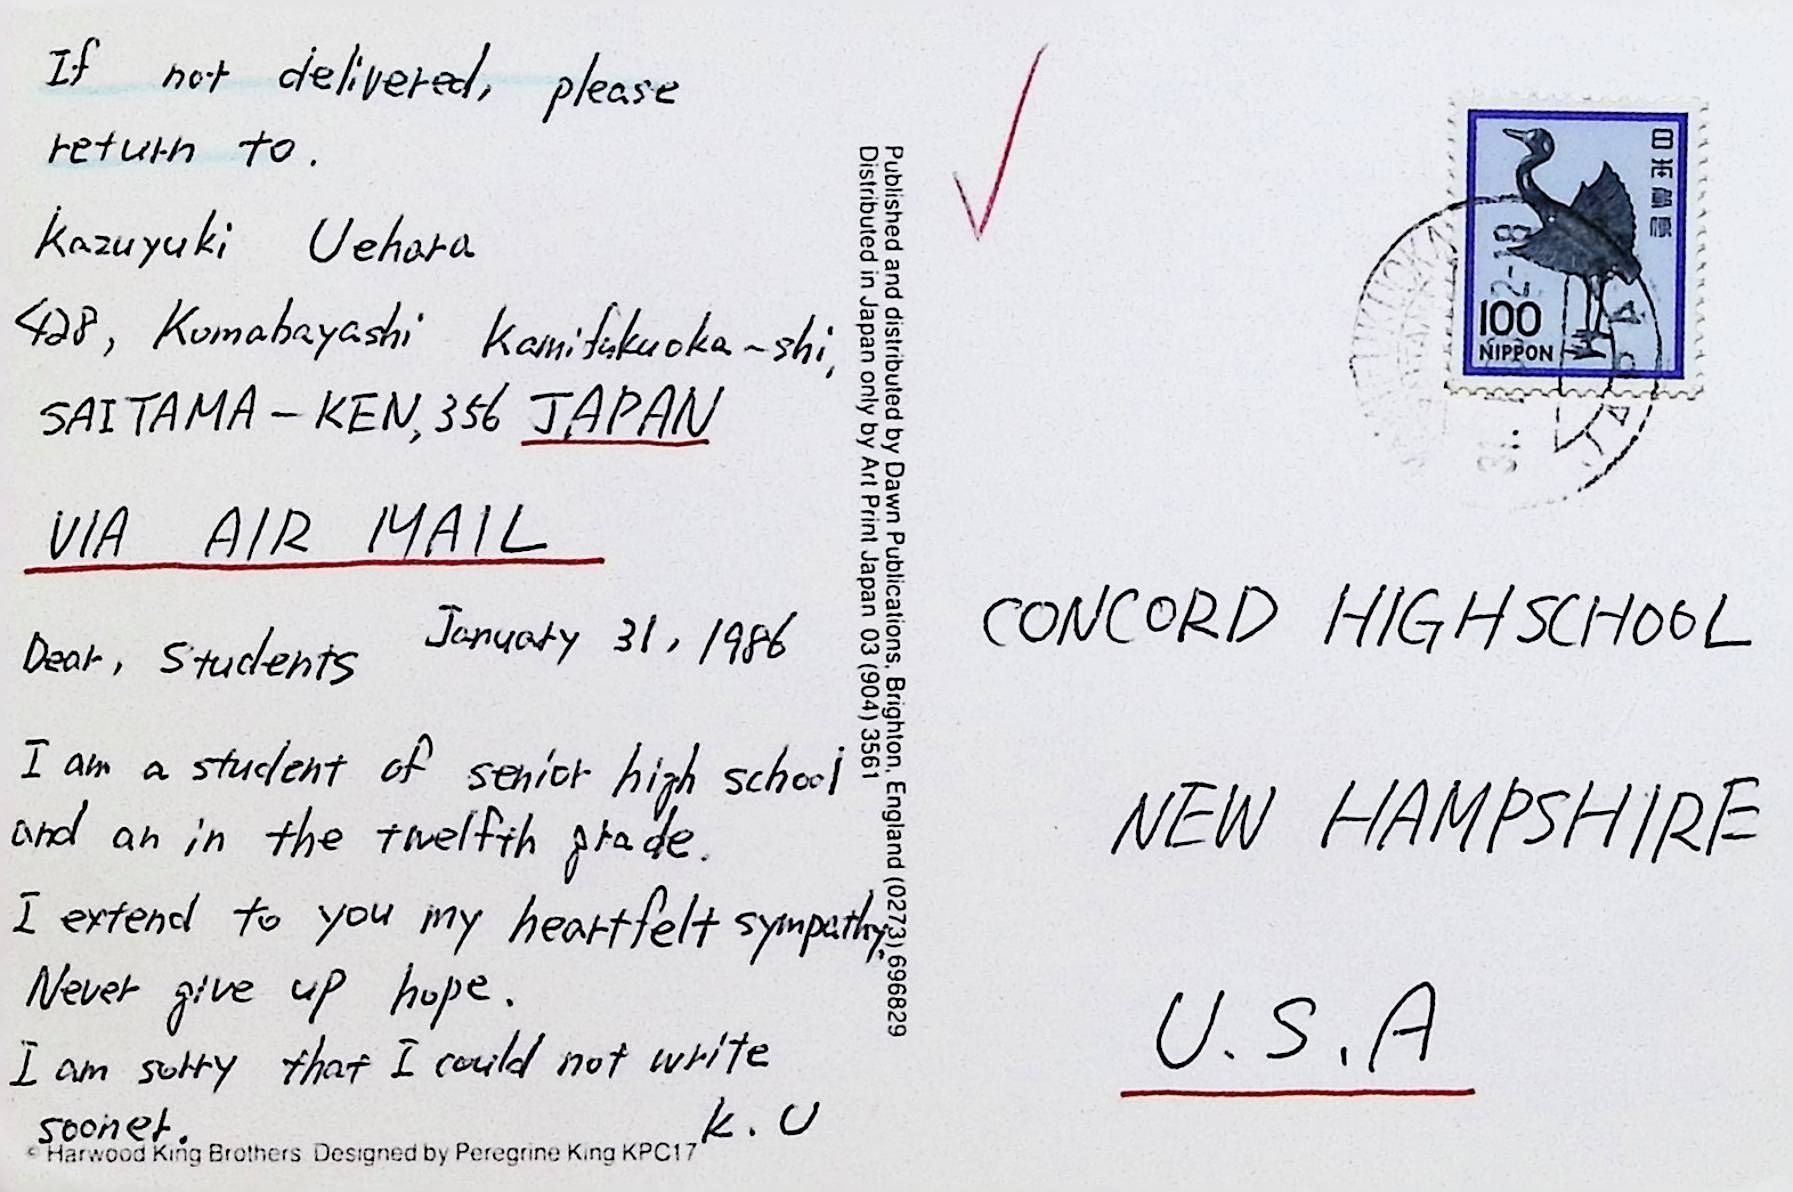 If not delivered, please
return to.
Kazuyuki Uehara
428, Komabayashi Kamifukuoka-shi,
SAITAMA-KEN, 356 JAPAN
VIA AIR MAIL
January 31, 1986
Dear, Students
I am a student of senior high school
and an in the twelfth grade.
I extend to you my heartfelt sympathy.
Never give up hope.
I am sorry that I could not write
sooner.
K.U
© Harwood King Brothers Designed by Peregrine King KPC17
Published and distributed by Dawn Publications, Brighton, England (0273) 696829
Distributed in Japan only by Art Print Japan 03 (904) 3561
日本郵便
100
NIPPON
JAPAN
CONCORD HIGHSCHOOL
NEW HAMPSHIRE
U.S.A